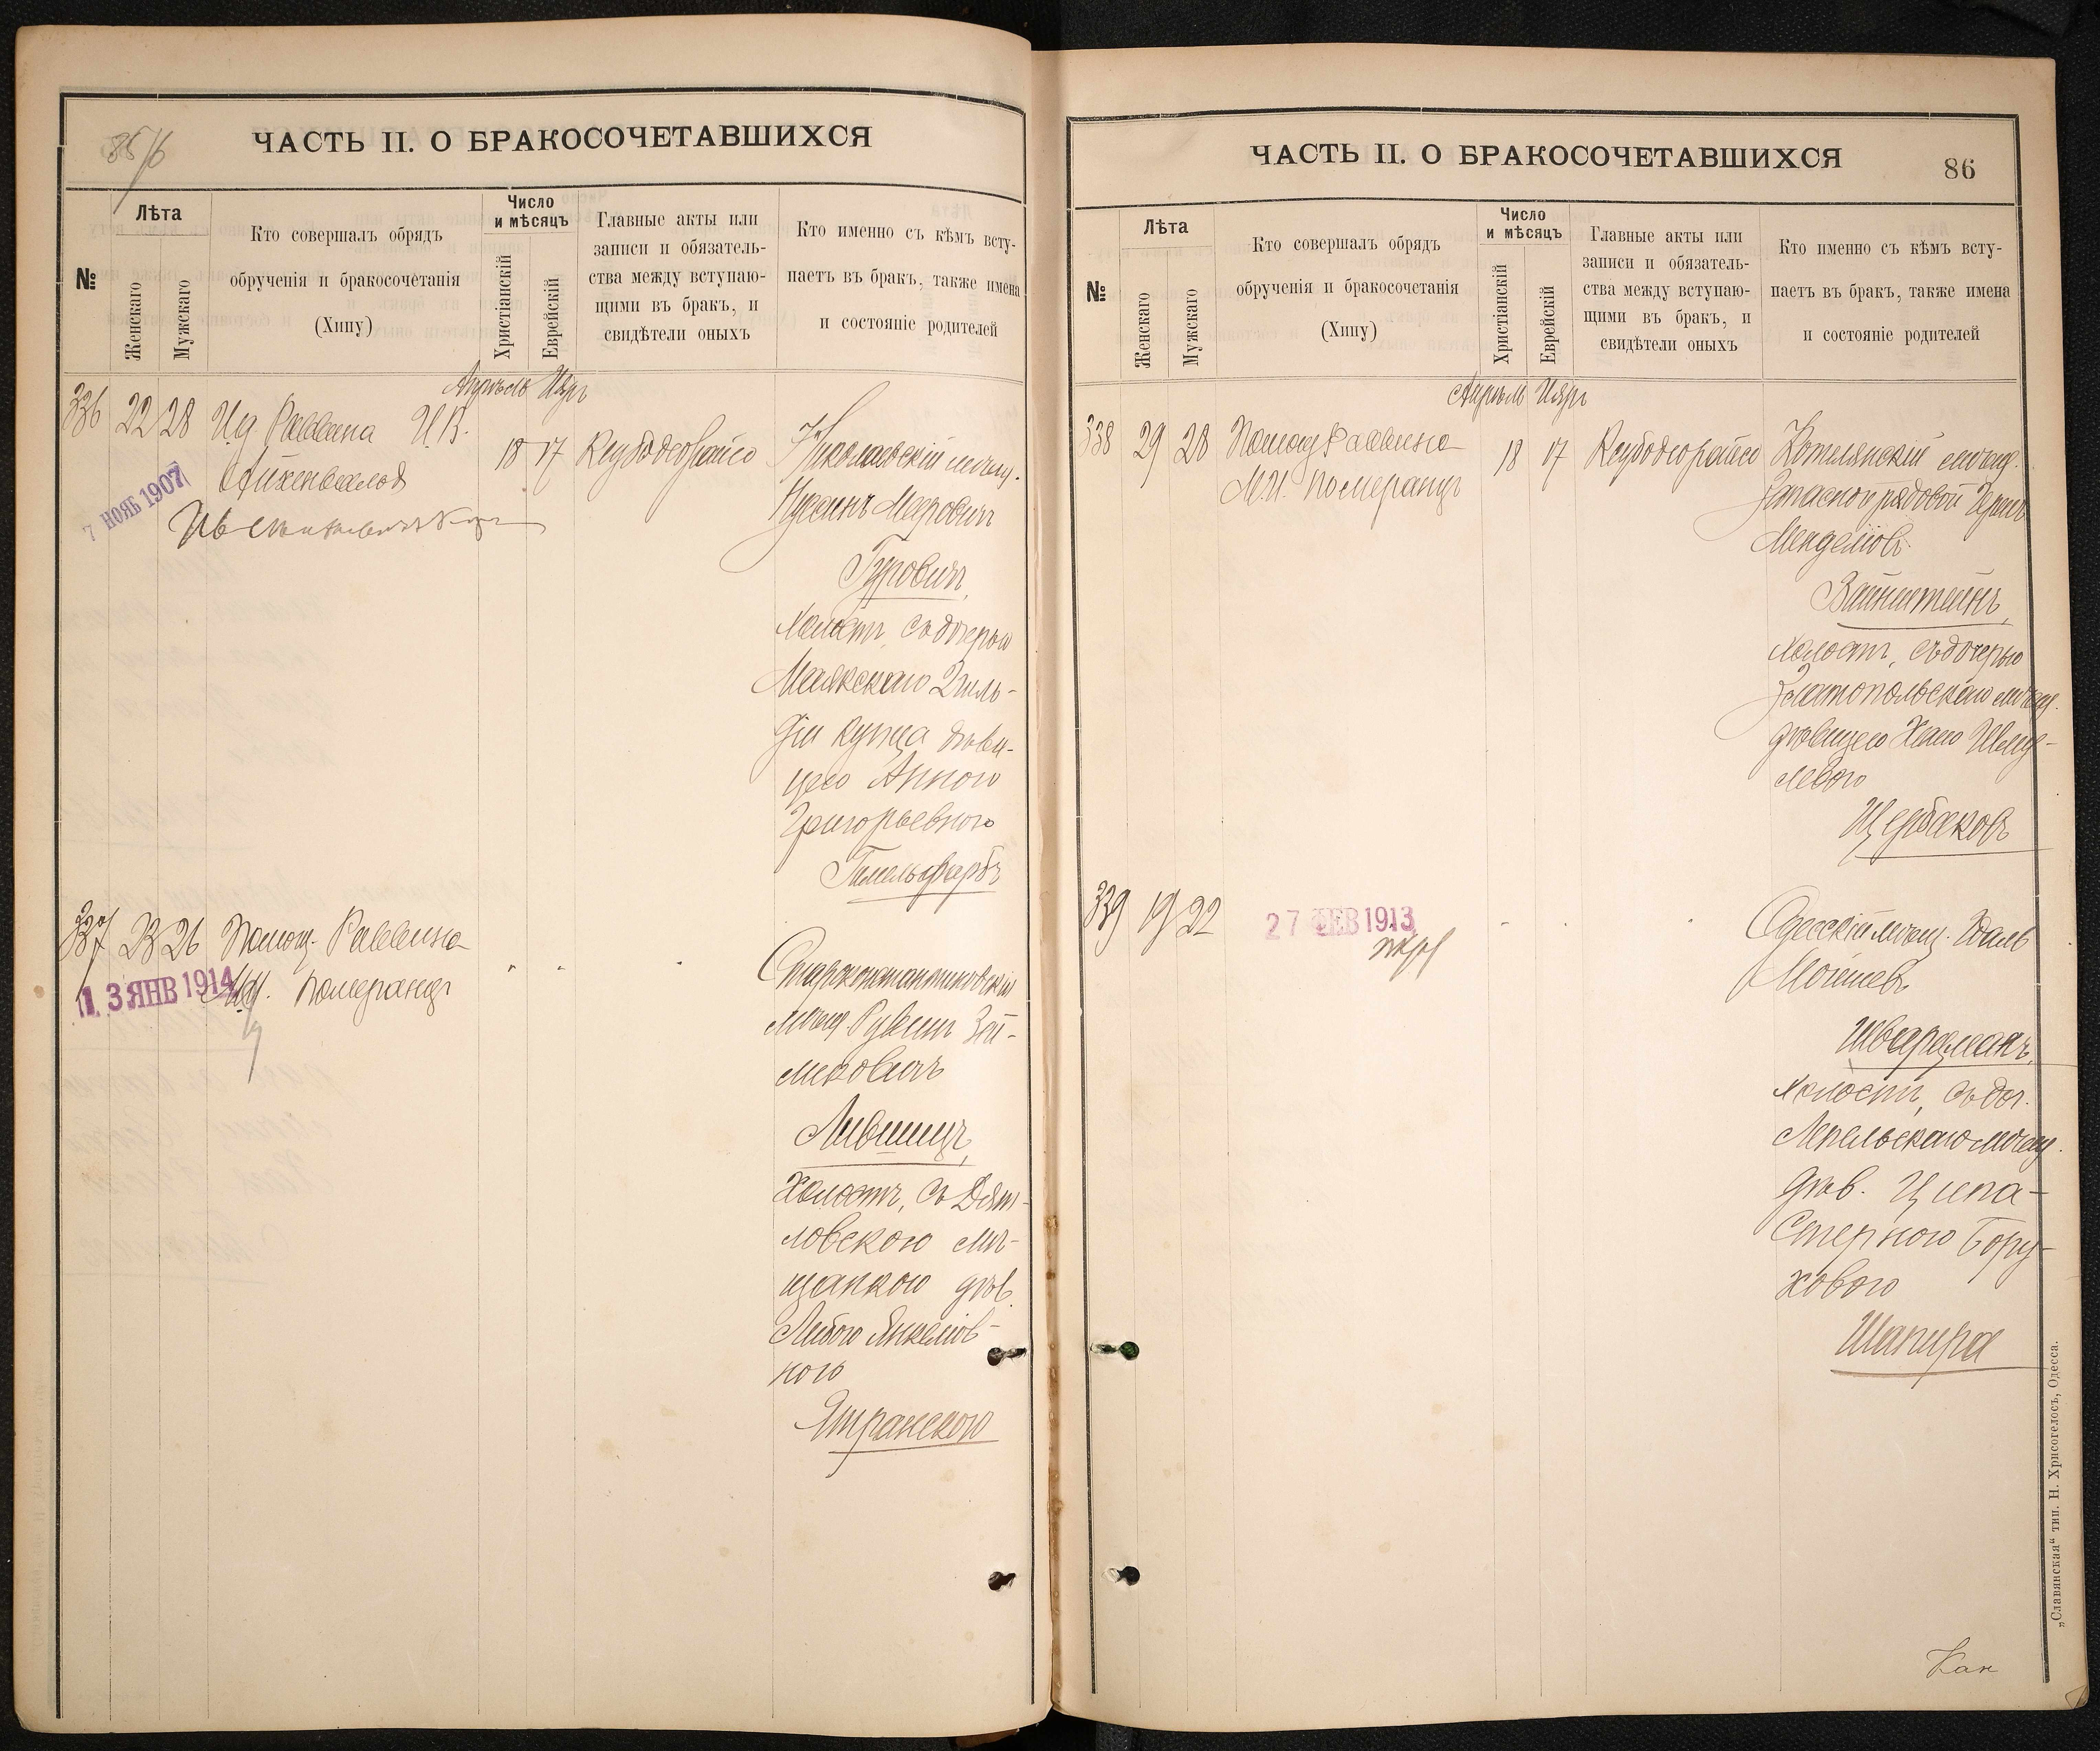 85/6
ЧАСТЬ II. О БРАКОСОЧЕТАВШИХСЯ
№
Лѣта
Женскаго
Мужскаго
Кто совершалъ обрядъ
обрученія и бракосочетанія
(Хипу)
Число
и мѣсяцъ
Христіанскій
Еврейскій
Главные акты или
записи и обязатель-
ства между вступаю-
щими въ бракъ, и
свидѣтели оныхъ
Кто именно съ кѣмъ всту-
паетъ въ бракъ, также имена
и состояніе родителей
Апрѣль Іяръ
336 22 28 И.д Раввина И.В.
Айхенвальд
18 17
7 НОЯБ 1907
Николаевскій мѣщ.
Нусинъ Меровичъ
Гуровичъ,
холостъ, съ дочерью
Маякскаго 2 гиль-
діи купца дѣви-
цею Анною
Григорьевною
Гимельфарбъ
337 23 26 Помощ. Раввина
М.И. Померанцъ
" " "
13 ЯНВ 1914
Староконстантиновскій
мѣщ. Рувинъ Зей-
ликовичъ
Лившицъ,
холостъ, съ Дят-
ловскою мѣ-
щанкою дѣв.
Либою Янкелев-
ною
Ятранскою
ЧАСТЬ II. О БРАКОСОЧЕТАВШИХСЯ
86
№
Лѣта
Женскаго
Мужскаго
Кто совершалъ обрядъ
обрученія и бракосочетанія
(Хипу)
Число
и мѣсяцъ
Христіанскій
Еврейскій
Главные акты или
записи и обязатель-
ства между вступаю-
щими въ бракъ, и
свидѣтели оныхъ
Кто именно съ кѣмъ всту-
паетъ въ бракъ, также имена
и состояніе родителей
Апрѣль Іяръ
338 29 28 Помощ Раввина
М.И. Померанцъ
18 17
мѣщ.
Запасной рядовой Герш
Менделевъ
Вайнштейнъ,
холостъ, съ дочерью
Златопольскаго мѣщ.
дѣвицею Хаю Шму-
левою
Щербаковъ
339 19 22
27 ФЕВ 1913
Одесскій мѣщ.
Мошевъ
Шварцманъ,
холостъ, съ доч.
Лепельскаго мѣщ.
дѣв. Ципа-
Стерною Бору-
ховою
Шапира
„Славянская“ тип. Н. Хрисогелосъ, Одесса.